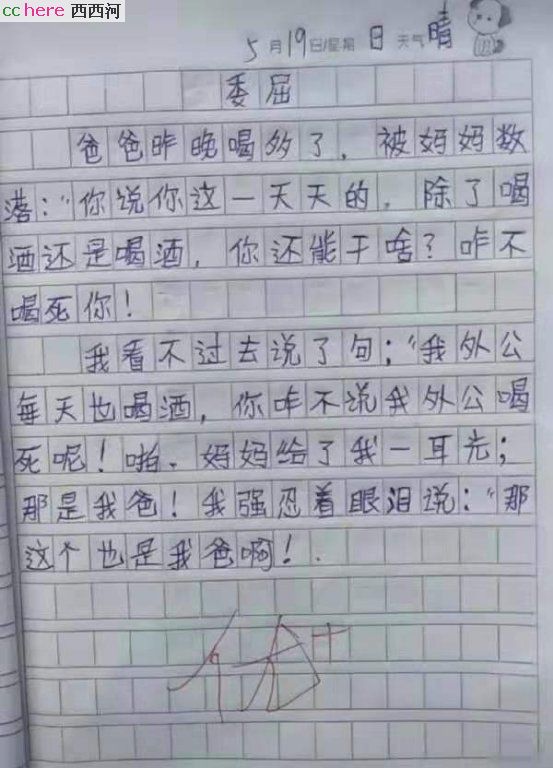 cchere 西西河
5月19日/星期日 天气晴
委屈
爸爸昨晚喝多了，被妈妈数
落："你说你这一天天的，除了喝
酒还是喝酒，你还能干啥？咋不
喝死你！
我看不过去说了句："我外公
每天也喝酒，你咋不说我外公喝
死呢！啪．妈妈给了我一耳光；
那是我爸！我强忍着眼泪说："那
这个也是我爸啊！．
优+